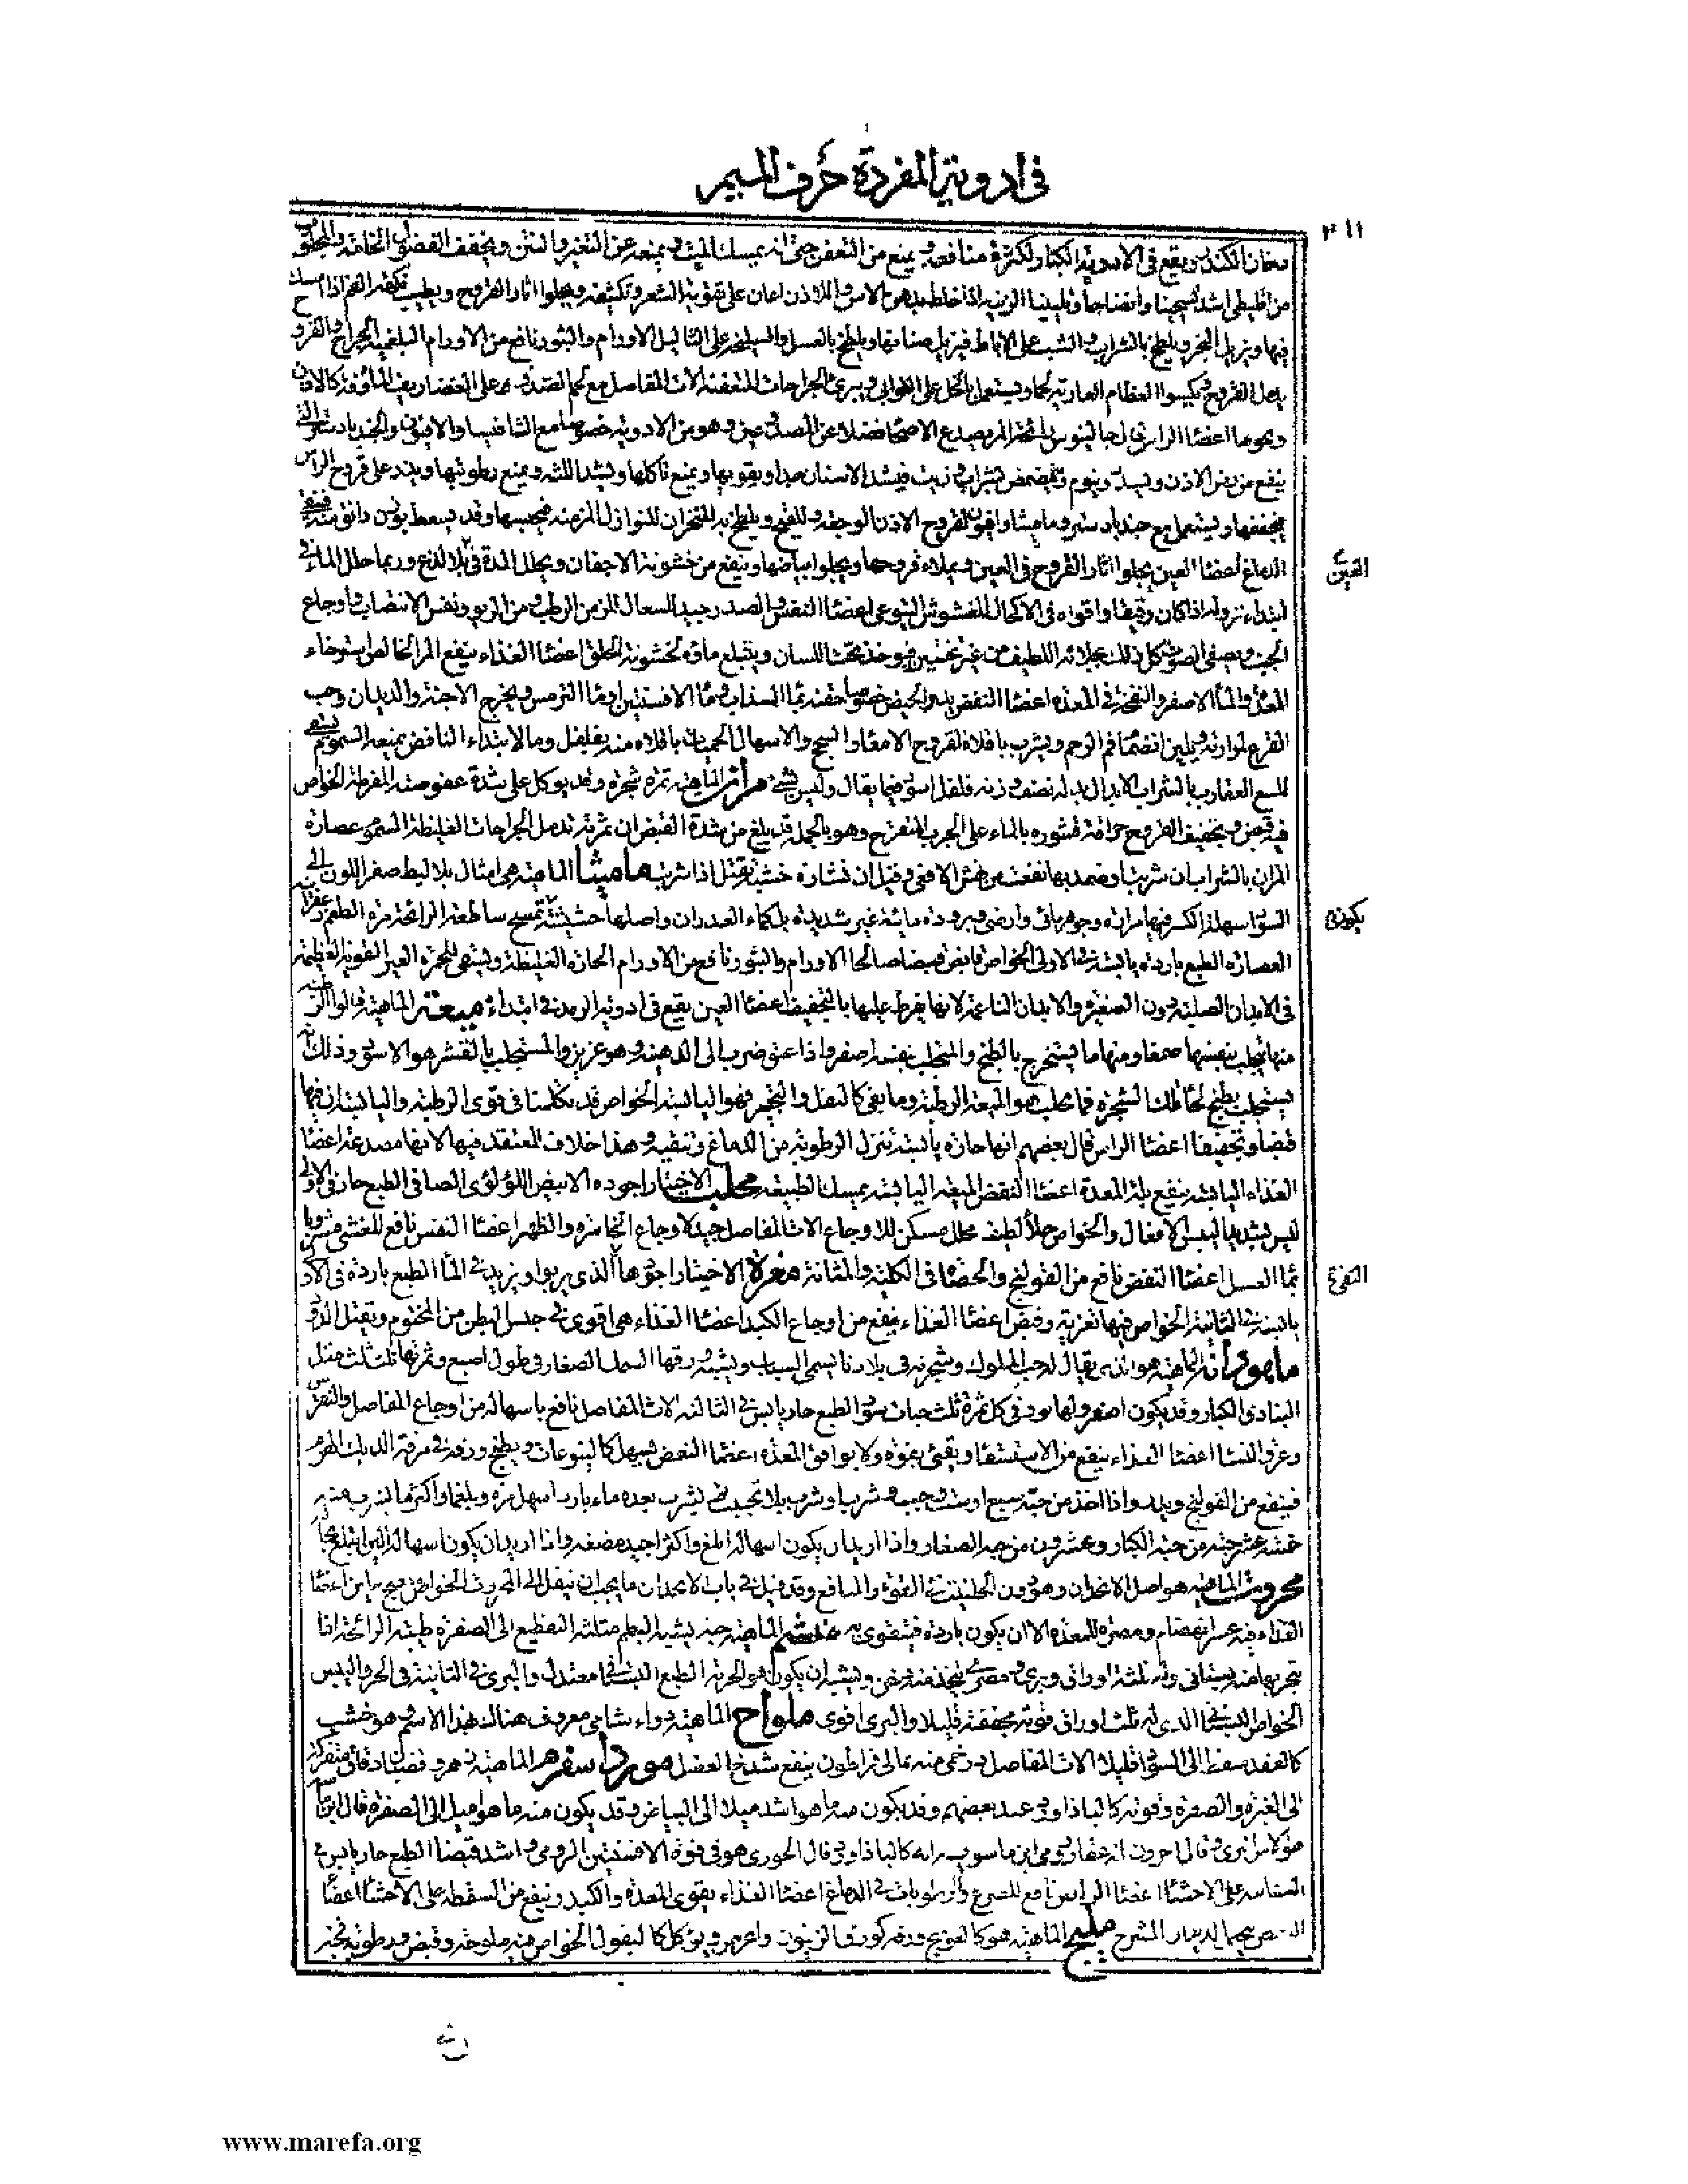 في ادوية المفردة حرف الميم
٢١١
دخان الكندر ويقع في الادوية الكبار لكثرة منافعه و يمنع من التعفن حتى انه يمسك الميت و يمنعه عن التغير والنتن ويجفف الفضول
اشد تسخينا وانضاجا وتليينا اذا خلط بدهن الاس واللاذن اعان على تقوية الشعر وتكثيفه ويجلوا اثار القروح ويطيب نكهة الفم اذا امسك
فيها ويزيل البخر ويلطخ بالشراب والشب على الاباط فيزيل صنانها ويلطخ بالعسل والسليخة على الثاليل الاورام والبثور نافع من الاورام البلغمية الجراح والقروح
يدمل القروح ويكسوا العظام العارية لحما ويستعمل بالخل على القوابي ويبرئ الجراحات المتعفنة الات المقاصل مع لحم الصدف على الغضاريف كالاذن
ونحوها اعضا الراس قال جالينوس رائحة المر يصدع الاصحا فضلا عن المصدوعين وهو من الادوية خصوصا مع والافيون والجندبادستر
ينفع من الاذن وينوم ويتمضمض بشراب و زيت فيشد الاسنان جدا ويقويها ويمنع تاكلها ويشد اللثه ويمنع رطوبتها ويذر على قروح الراس
فيجففها ويستعمل مع جندبادستر و ماميثا وافيون لقروح الاذن الوجعة و للقيح ويلطخ به المنخران للنوازل المزمنة فيحبسها وقد يسعط بوزن دانق منه فينقي
العين
الدماغ اعضا العين يجلوا اثار القروح في العين و يملاء قروحها ويجلوا بياضها وينفع من خشونة الاجفان ويحلل المدة في بلا لذع وربما حلل الماء في
ابتداء نزوله اذا كان رقيقا واقواه في الاكحال المغشوش اليتوعي اعضا النفس والصدر جيد للسعال المزمن الرطب و من الربو ونفس الانتصاب و اوجاع
الجنب و يصفي الصوت كل ذلك بجلائه اللطيف من غير تخشين ويوخذ تحت اللسان ويبتلع ماؤه لخشونة الحلق اعضا الغذاء ينفع المر الخالص استرخاء
المعدة والماء الاصفر والنفخة في المعدة اعضا النفض يدر الحيض خصوصا حقنة بماء السذاب و بماء الافسنتين او بماء الترمس و يخرج الاجنة والديدان وحب
القرع لمرارته ويلين انضمام فم الرحم ويشرب باقلاة لقروح الامعاء والسحج والاسهال الحميات باقلاه منه بفلفل وماء لابتداء النافض يمنعه السموم يسقى
للسع العقارب بالشراب الابدال بدله نصف وزنه فلفل اسود فيما يقال وليس بشيء مران الماهية ثمرة شجرة وقد يوكل على شدة عفوصته المفرطة الخواص
فيه قبض و تجفيف القروح حراقة قشوره بالماء على الجرب المتقرح وهو بالجملة قد بلغ من شدة القبض ان ثمرته تدمل الجراحات الغليظة السموم عصارة
المران بالشراب ان شربت او ضمد بها نفعت من نهش الافعى و قيل ان نشارة خشبه تقتل اذا شربت ماميثا الماهية هي امثال بلاليط صفر اللون الى
يكون به
السواد سهلة الكسر فيها مرارة وجوهر مائي وارضي و برودة مائية غير شديدة بل كماء الغدران واصلها حشيشة ساطعة الرائحة مرة الطعم
العصارة الطبع باردة يابسة في الاولى الخواص قابض قبضا صالحا الاورام والبثور نافع من الاورام الحارة الغليظة وليشفي الحمرة الغير القوية العظيمة
في الابدان الصلبة دون الصغيرة والابدان الناعمة لانها يفرط عليها بالتجفيف اعضا العين يقع في ادوية الرمد في ابتداء ميعة الماهية قالوا
منها يتحلب بنفسها صمغا ومنها ما يستخرج بالطبخ والمتحلب بنفسه اصفر واذا عتق ضرب الى الذهبية وهو عزيز والمستحلب بالقشر هو الاسود وذلك انه
يستحلب بطبخ لحاء تلك الشجرة فما تحلب هو الميعة الرطبة وما بقي كالثفل والثجير فهو اليابسة الخواص قد تكلمنا في قوى الرطبة واليابسة ان فيها
قبضا وتجفيفا اعضا الراس قال بعضهم انها حارة يابسة تنزل الرطوبة من الدماغ وتنقيه و هذا خلاف المعتقد فيها لانها مصدعة اعضا
الغذاء اليابسة ينفع بلة المعدة اعضا النفض الميعة اليابسة يمسك الطبيعة محلب الاختيار اجوده الابيض اللؤلؤي الصافي الطبع حار في الاولى
ليس بشديد اليبس الافعال والخواص جلاء لطيف محلل مسكن للاوجاع الات المفاصل جيد لاوجاع الخاصرة والظهر اعضا النفس نافع للغشي مشروبا
النقيع
بماء العسل اعضا النفض نافع من القولنج والحصاة في الكلية والمثانة مغرة الاختيار اجودها الذي يربوا ويزيد في الماء الطبع باردة في الاولى
يابسة في الثانية الخواص فيها تغرية وقبض اعضا الغذاء ينفع من اوجاع الكبد اعضا الغذاء هي اقوى في حبس البطن من المختوم ويقتل الدود
ماهودانه الماهية هو الذي يقال له حب الملوك وشجرته في بلادنا يسمى ويشبه ورقها السمك الصغار في طول اصبع وثمرتها ثلث ثلث مثل
البنادق الكبار وقد يكون اصغر ولها سود في كل ثمرة ثلث حبات سود الطبع حار يابس في الثالثة الات المفاصل نافع باسهاله من اوجاع المفاصل والنقرس
وعرق النسا اعضا الغذاء ينفع من الاستسقا ويقيئ بقوة ولا يوافق المعدة اعضا النفض يسهل كاليتوعات و يطبخ ورقه في مرقة الديك الهرم
فينفع من القولنج ويدر واذا اخذ من حبه سبع او ست وحبب و شرب او شرب بلا تحبيب ثم يشرب بعده ماء بارد اسهل مرة وبلغما واكثر ما يشرب منه
خمسة عشر حبة من حبه الكبار وعشرون من حبه الصغار واذا اريد ان يكون اسهاله ابلغ واكثر اجيد مضغه واذا اريد ان يكون اسهاله الين ابتلع بحاله
محروث الماهية هو اصل الانجدان وهو دون الحلتيت في القوة والمنافع وقد قيل في باب الانجدان ما يجب ان ينقل الى المحروث الخواص اعضا
الغذاء فيه عسر انهضام و مضرة للمعدة الا ان يكون باردة فيتقوى به منشم الماهية حبة يشبه البطم مثلثة التقطيع الى الصفرة طيبة الرائحة
منه بستاني وله ثلثة اوراق وبري و مصري يتخذ منه خبز ويشبه ان يكون هو الطبع البستاني معتدل والبري في الثانية في الحر واليبس
الخواص البستاني الذي له ثلث اوراق قوته مجففة قليلا والبري اقوى ملواح الماهية دواء شامي معروف هنالك بهذا الاسم و هو خشب
كالعقد الى السواد قليلا الات المفاصل منه بمالي قراطون ينفع شدخ العضل مورداسفرم الماهية زهر و قضبان دقاق متفركة
الى الغبرة والصفرة وقوته كالباذاورد عند بعضهم وقد يكون منه ما هو اشد ميلا الى البياض وقد يكون منه ما هو اميل الى الصفرة قال
هو كاس بري و قال انه عقار رومي ابن ماسويه انه كالباذاورد قال الخوزي هو في قوة الافسنتين الرومي و اشد قبضا الطبع حار يابس
على الاحشا اعضا الراس نافع للصرع والرطوبات في الدماغ اعضا الغذاء يقوي المعدة والكبد وينفع من السقطة على الاحشا اعضا
مليح الماهية هو كالعوسج ورقه كورق الزيتون واعرض ويؤكل كالبقول الخواص فيه ملوحة وقبض ورطوبة
www.marefa.org